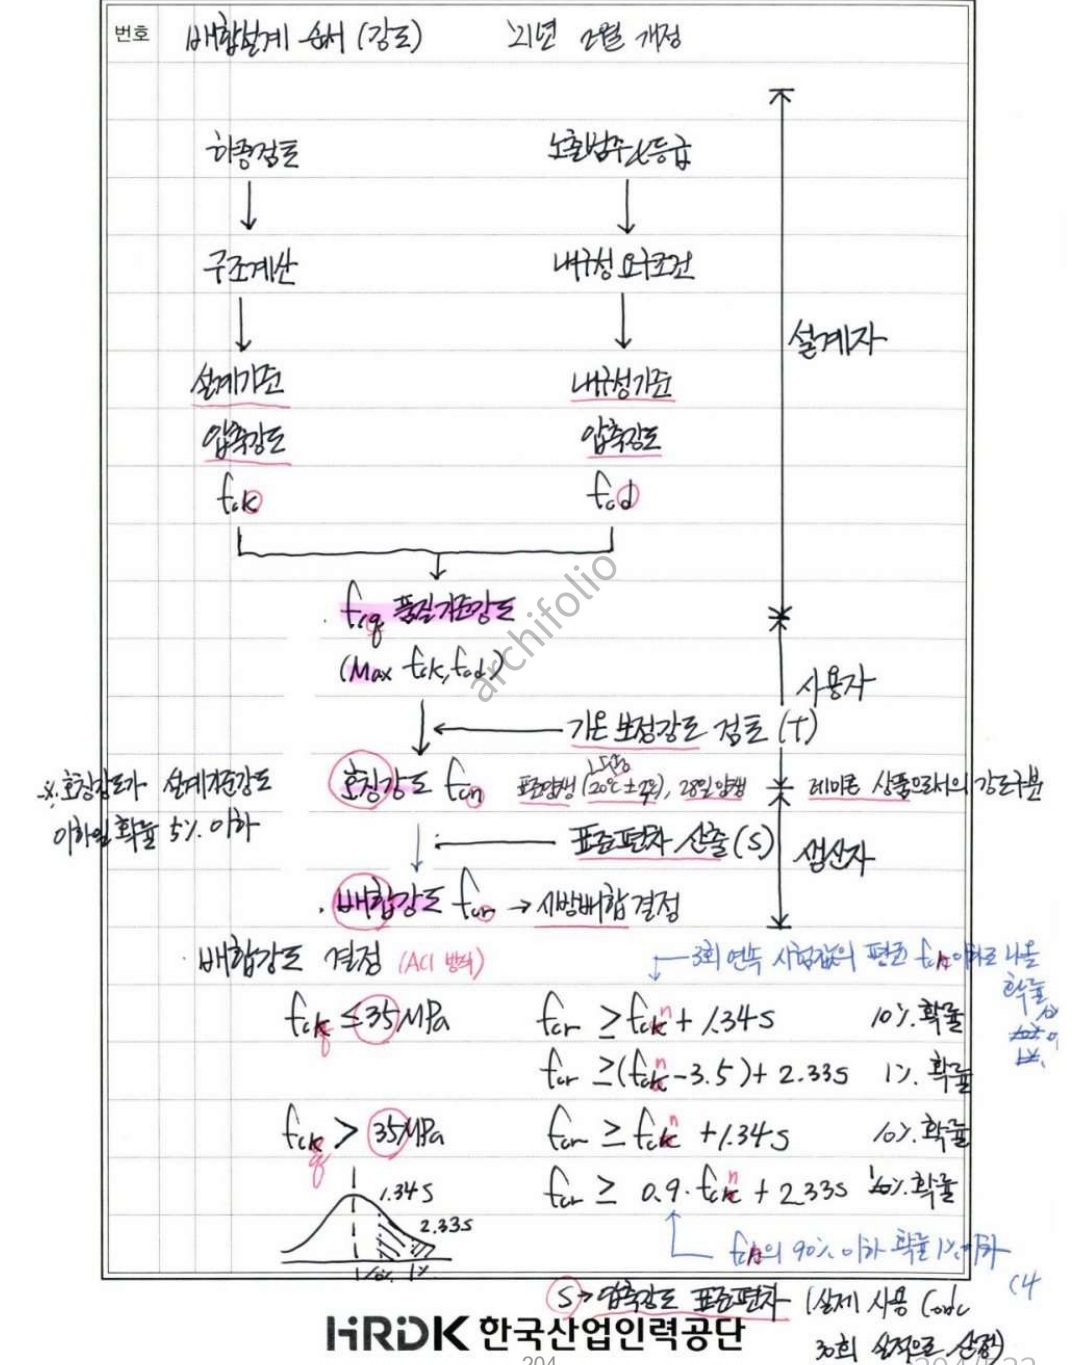 번호 배합설계 순서 (강도) '21년 2월 개정
하중검토 노출범주 & 등급
구조계산 내구성 요구조건
설계자
설계기준 내구성기준
압축강도 압축강도
fck fcd
fcq 품질기준강도
(Max fck, fcd)
사용자
기온 보정강도 검토 (T)
호칭강도 fcn 표준양생 (20℃ ± 2℃), 28일 양생 레미콘 상품으로서의 강도구분
※ 호칭강도가 설계기준강도
이하일 확률 5% 이하
표준편차 산출 (S) 생산자
배합강도 fcr → 시방배합 결정
배합강도 결정 (ACI 방식)
3회 연속 시험값의 평균 fcn 이하로 나올
확률
fcq ≤ 35MPa fcr ≥ fcn + 1.34s 10% 확률
fcr ≥ (fcn - 3.5) + 2.33s 1% 확률
fcq > 35MPa fcr ≥ fcn + 1.34s 10% 확률
fcr ≥ 0.9·fcn + 2.33s 1% 확률
1.34s
2.33s
10% 1%
fcn의 90% 이하 확률 1% 이하
S → 압축강도 표준편차 (실제 사용 Conc
30회 실적으로 산정)
archifolio
HRDK 한국산업인력공단
204